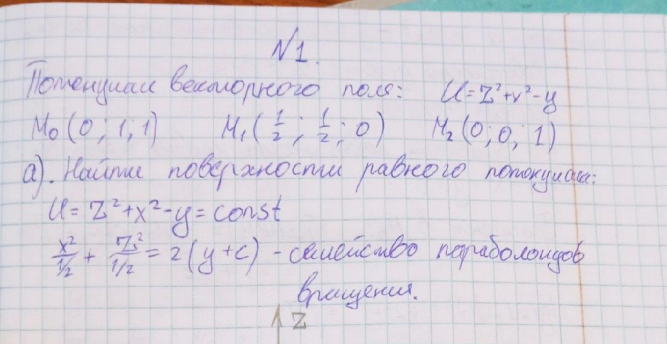 №1.
Потенциал векторного поля: U=z²+x²-y
M₀(0; 1, 1) M₁(1/2; 1/2; 0) M₂(0; 0, 1)
а). Найти поверхности равного потенциала:
U=z²+x²-y=const
x²/1/2 + z²/1/2 = 2(y+c) - семейство параболоидов
вращения.
z